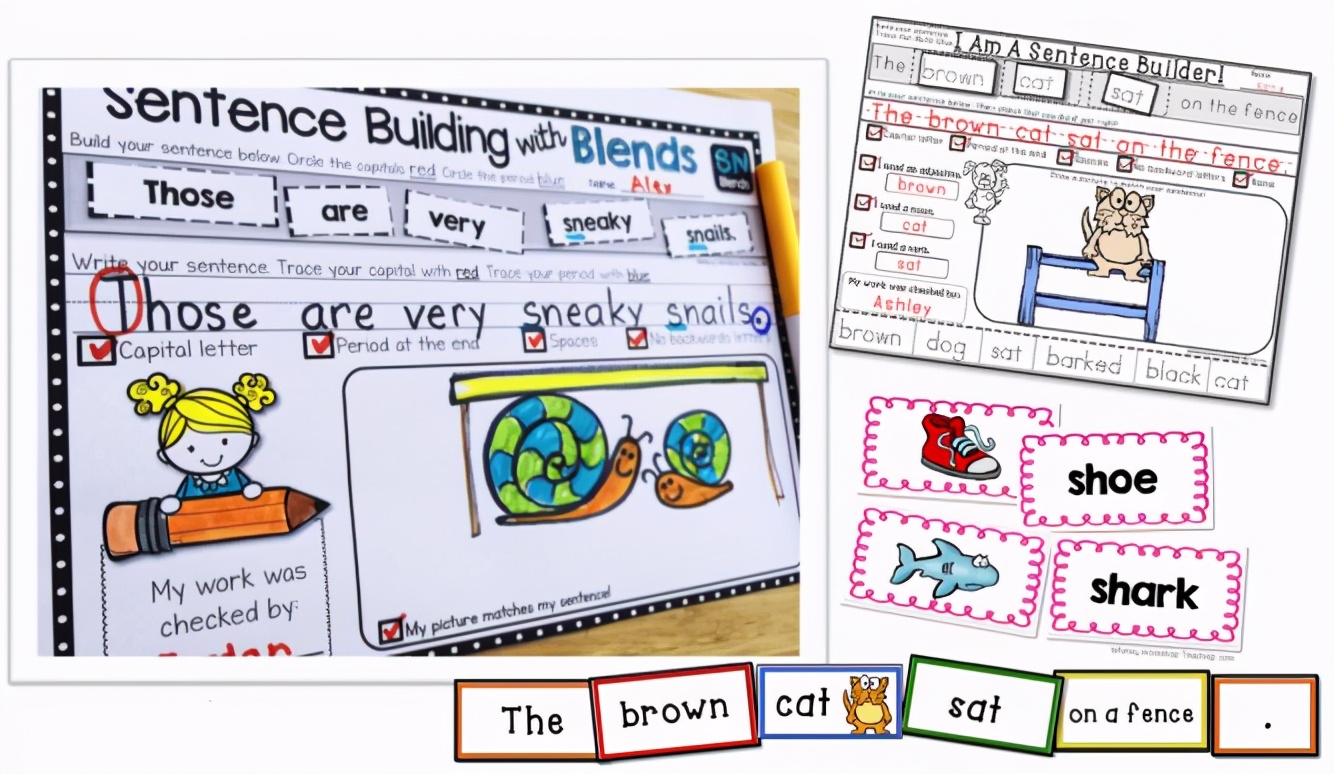 Sentence Building with Blends
SN
Blends
Build your sentence below. Circle the capitals red. Circle the period blue.
Name Alex
Those are very sneaky snails.
Write your sentence. Trace your capital with red. Trace your period with blue.
Those are very sneaky snails.
Capital letter Period at the end Spaces No backwards letters
My work was
checked by:
My picture matches my sentence!
I Am A Sentence Builder!
The brown cat sat on the fence
The brown cat sat on the fence.
brown
cat
sat
My work was checked by:
Ashley
brown dog sat barked black cat
shoe
shark
The brown cat sat on a fence .